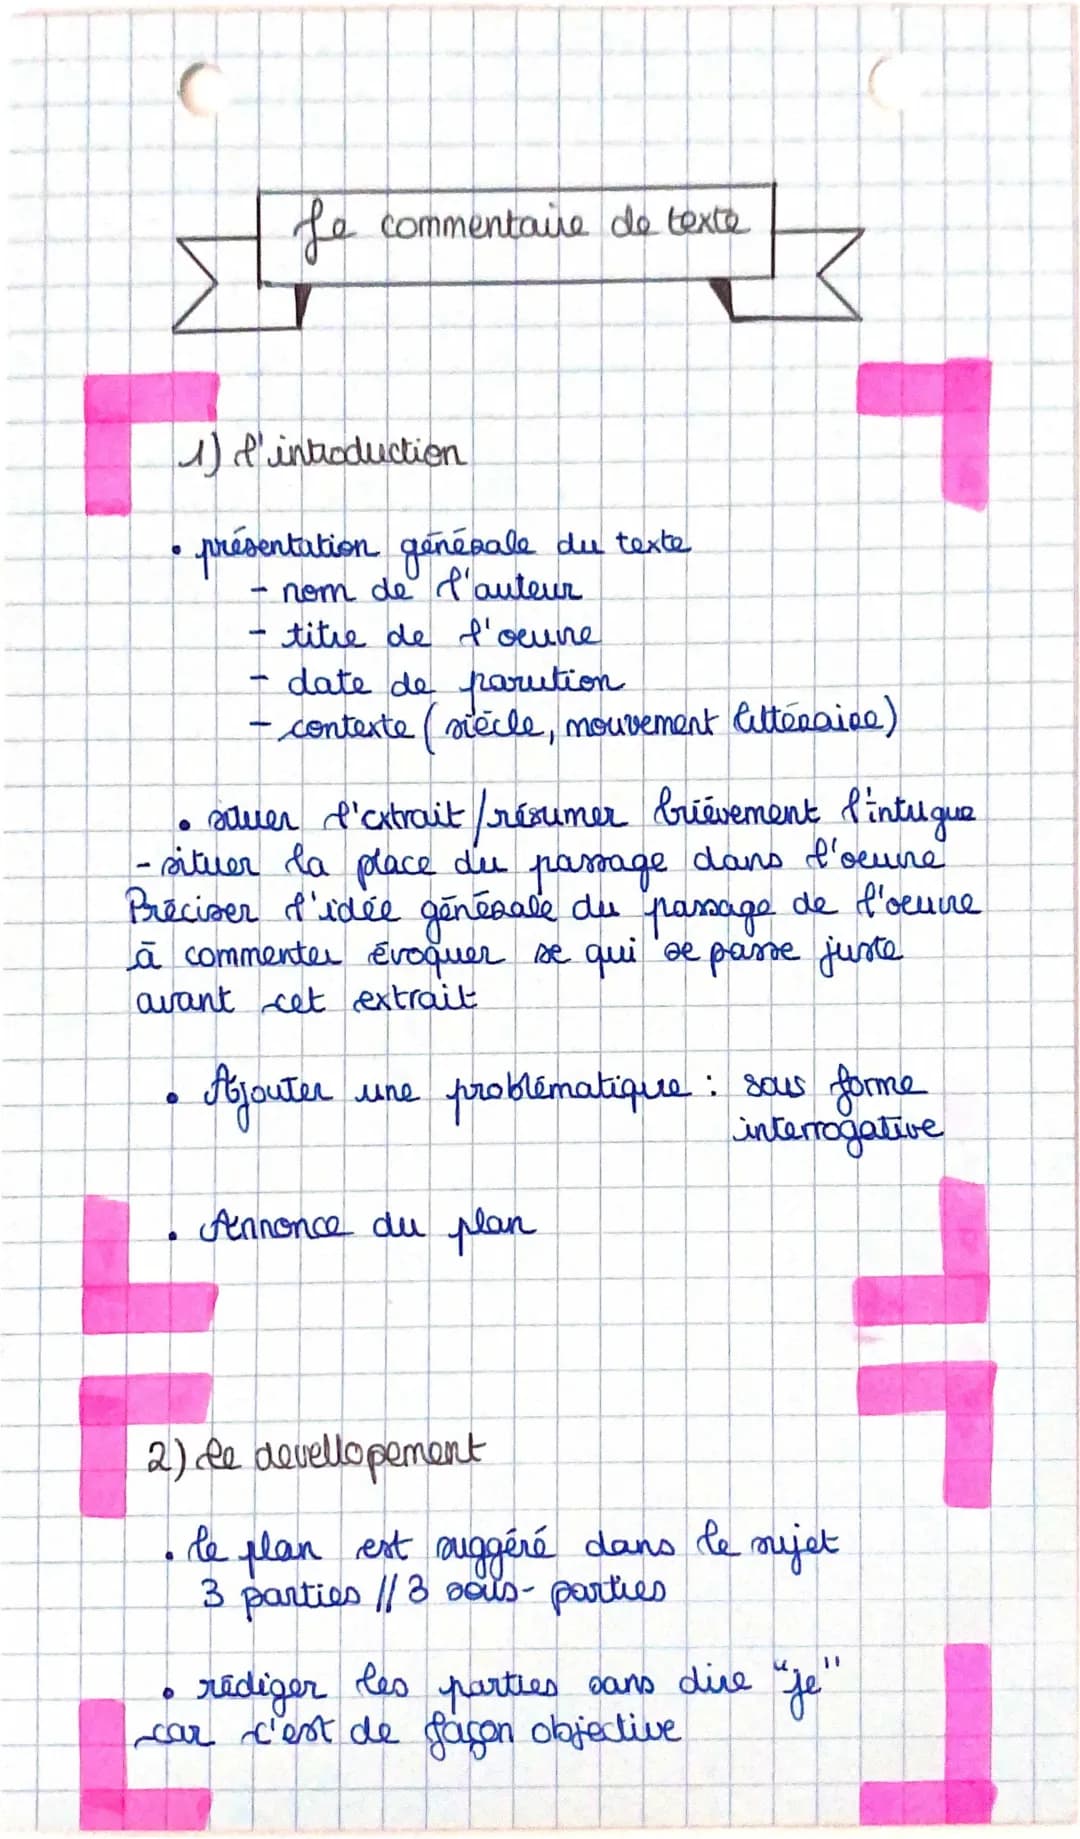 Le commentaire de texte
1) l'introduction
• présentation générale du texte
- nom de l'auteur
- titre de l'oeuvre
- date de parution
- contexte (siècle, mouvement littéraire)
• situer l'extrait/résumer brièvement l'intrigue
- situer la place du passage dans l'oeuvre
Préciser l'idée générale du passage de l'oeuvre
à commenter évoquer se qui se passe juste
avant cet extrait
• Ajouter une problématique : sous forme
interrogative
• Annonce du plan
2) le devellopement
• le plan est suggéré dans le sujet
3 parties // 3 sous-parties
• rédiger les parties sans dire "je"
car c'est de façon objective